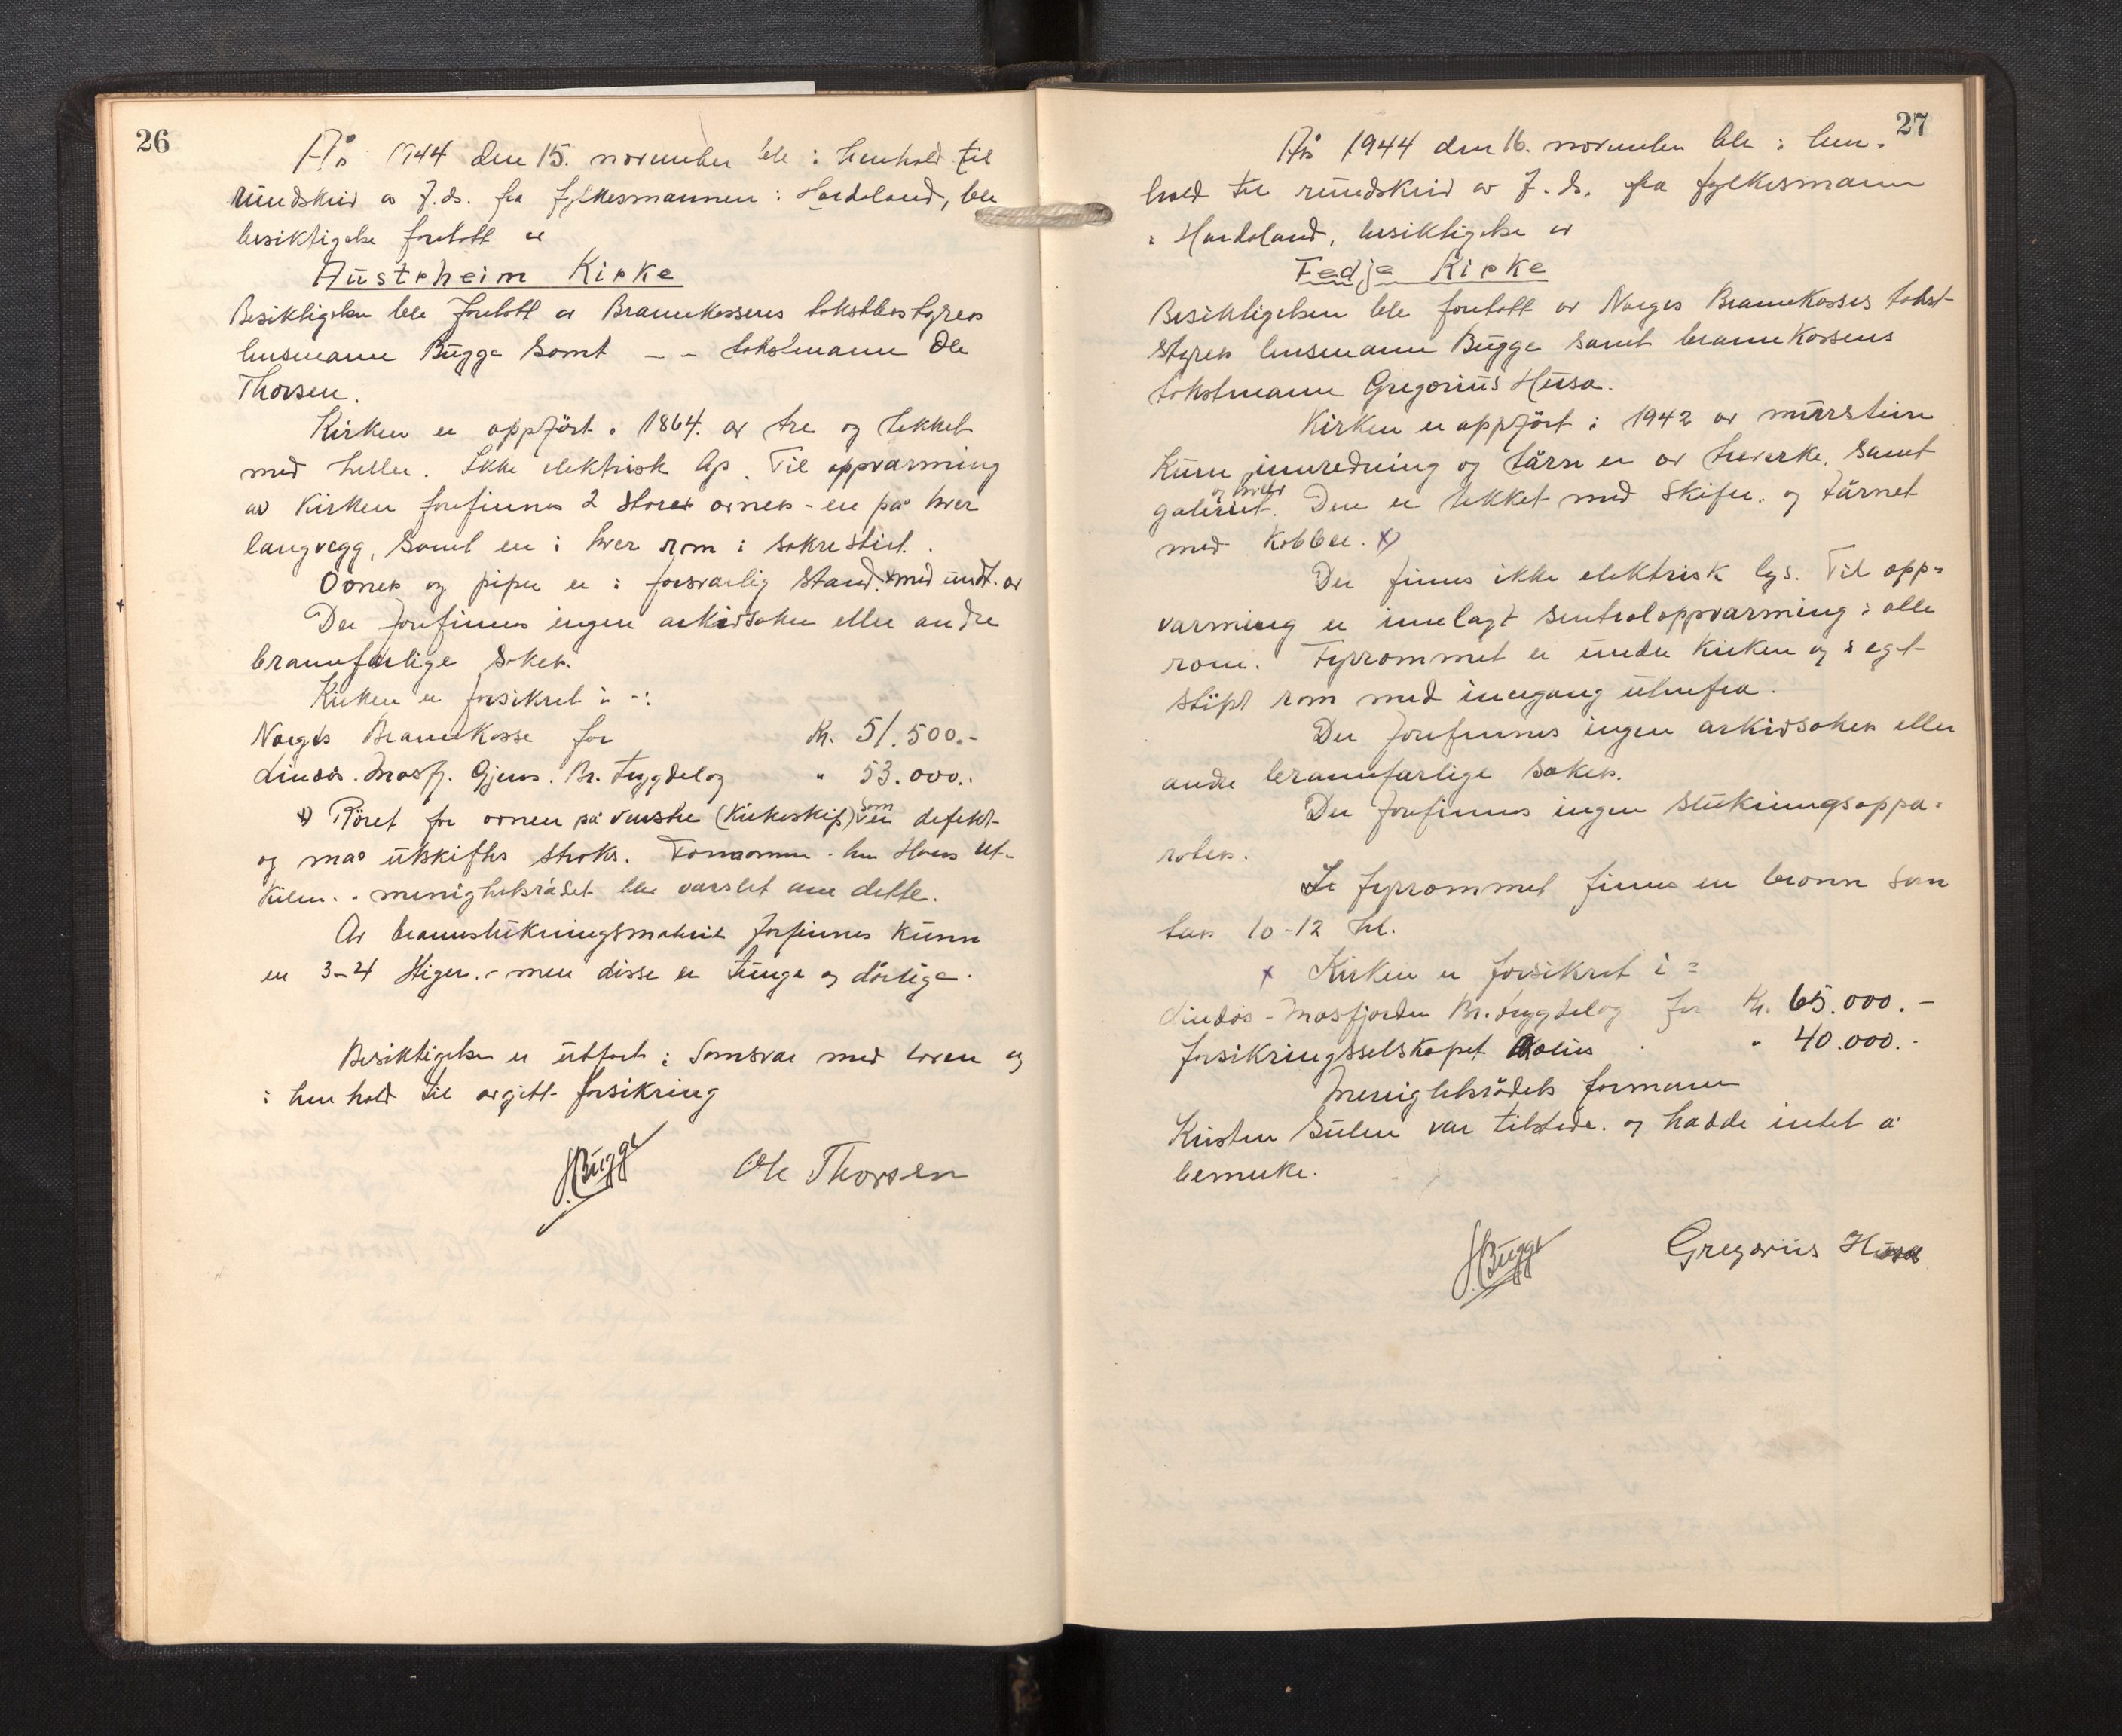 26
År 1944 den 15. november ble i henhold til
rundskriv av f.d. fra fylkesmannen i Hordaland, ble
besiktigelse foretatt av
Austrheim Kirke
Besiktigelsen ble foretatt av Brannkassens takstbestyrer
lensmann Bugge samt – – takstmann Ole
Thorsen.
Kirken er oppfört i 1864. av tre og tekket
med heller. Ikke elektrisk lys. Til oppvarming
av Kirken forefinnes 2 store ovner - en på hver
langvegg, samt en i hver rom i sakrestiet.
Ovner og piper er i forsvarlig stand. x med undt. av
Der forefinnes ingen arkivsaker eller andre
brannfarlige saker.
Kirken er forsikret i -:
Norges Brannkasse for Kr. 51.500.-
Lindås. Masfj. Gjens. Br. trygdelag " 53.000.-
x) Röret for ovnen på venstre (Kirkeskip) som er defekt
og må utskiftes straks. Formannen
menighetsrådet ble varslet om dette.
Av brannslukningsmateriel forfinnes kunn
en 3-4 stiger. - men disse er tunge og dårlige.
Besiktigelsen er utfört i samsvar med loven og
i henhold til avgitt forsikring
HBugge Ole Thorsen
27
År 1944 den 16. november ble i hen-
hold til rundskriv av f.d. fra fylkesmann
i Hordaland, besiktigelse av
Fedje Kirke
Besiktigelsen ble foretatt av Norges Brannkasses takst-
styrer lensmann Bugge samt brannkassens
takstmann Gregorius Husa.
Kirken er oppfört i 1942 av murstein
Kunn innredning og tårn er av treverke. samt
galeriet. Den er tekket med skifer. og tårnet
med kobber. x)
Der finnes ikke elektrisk lys. Til opp-
varming er innlagt sentraloppvarming i alle
rom. Fyrrommet er under Kirken og i eget
støpt rom med inngang utenfra.
Der forefinnes ingen arkivsaker eller
andre brannfarlige saker.
Der forefinnes ingen slukningsappa-
rater.
I fyrrommet finnes en brønn som
tar 10-12 hl.
x Kirken er forsikret i =
Lindås - Masfjorden Br. trygdelag for Kr. 65.000.-
forsikringsselskapet " 40.000.-
Menighetsrådets formann
Kristen Gulen var tilstede. og hadde intet å
bemerke.
HBugge Gregorius Husa